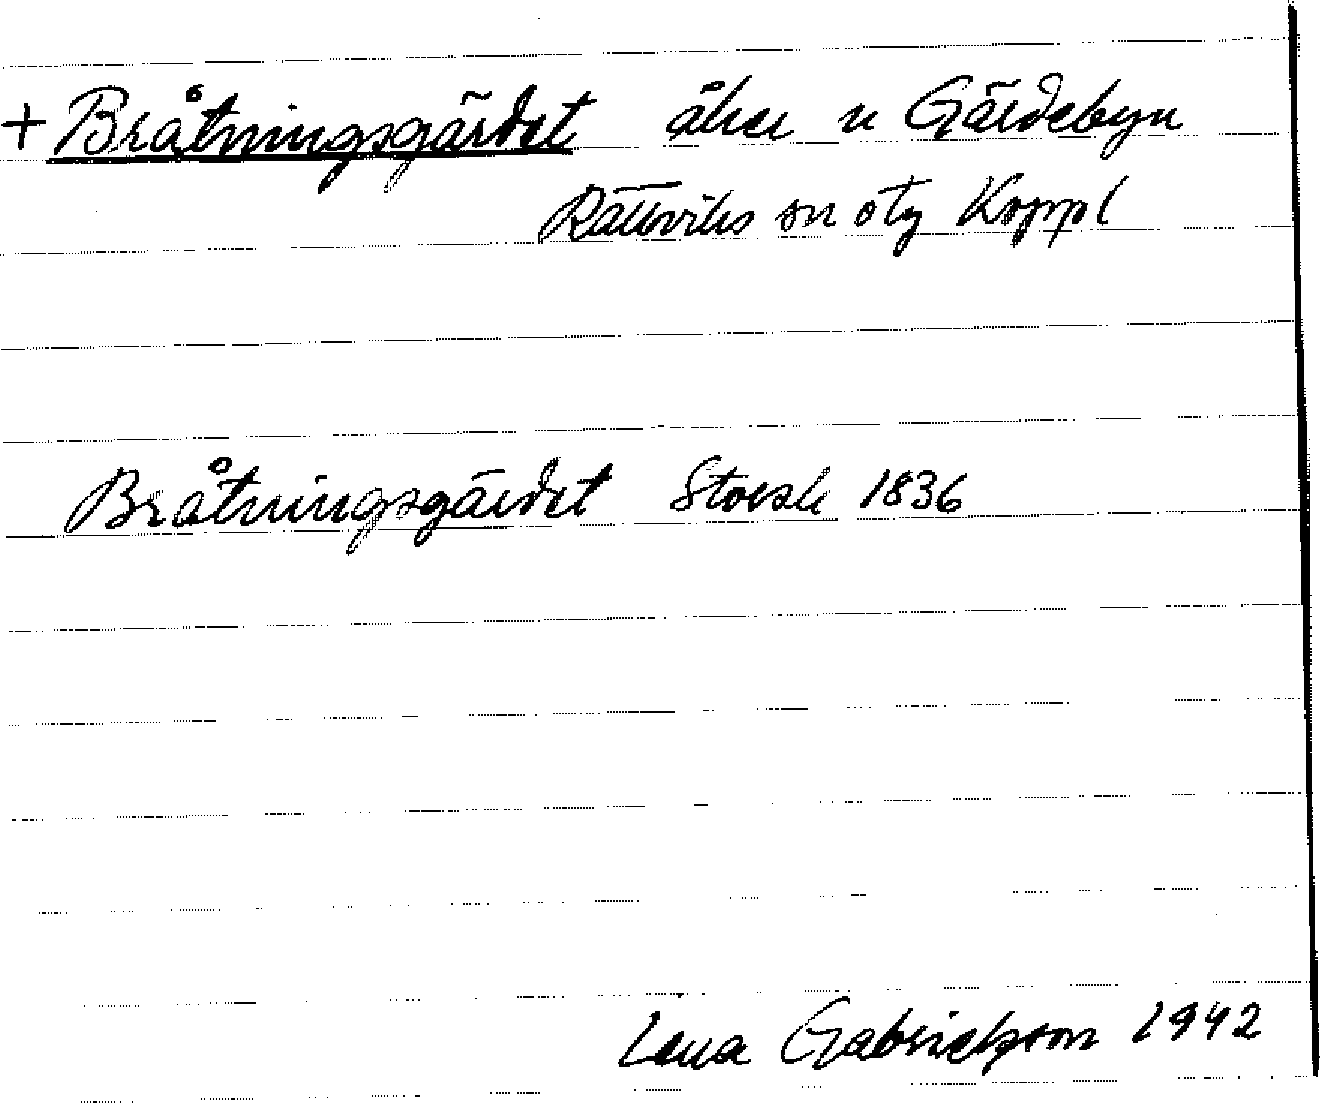 + Bråtningsgärdet åker n Gärdebyn
Rättviks sn otg Koppl
Bråtningsgärdet Storsk 1836
Lena Gabrielsson 1942